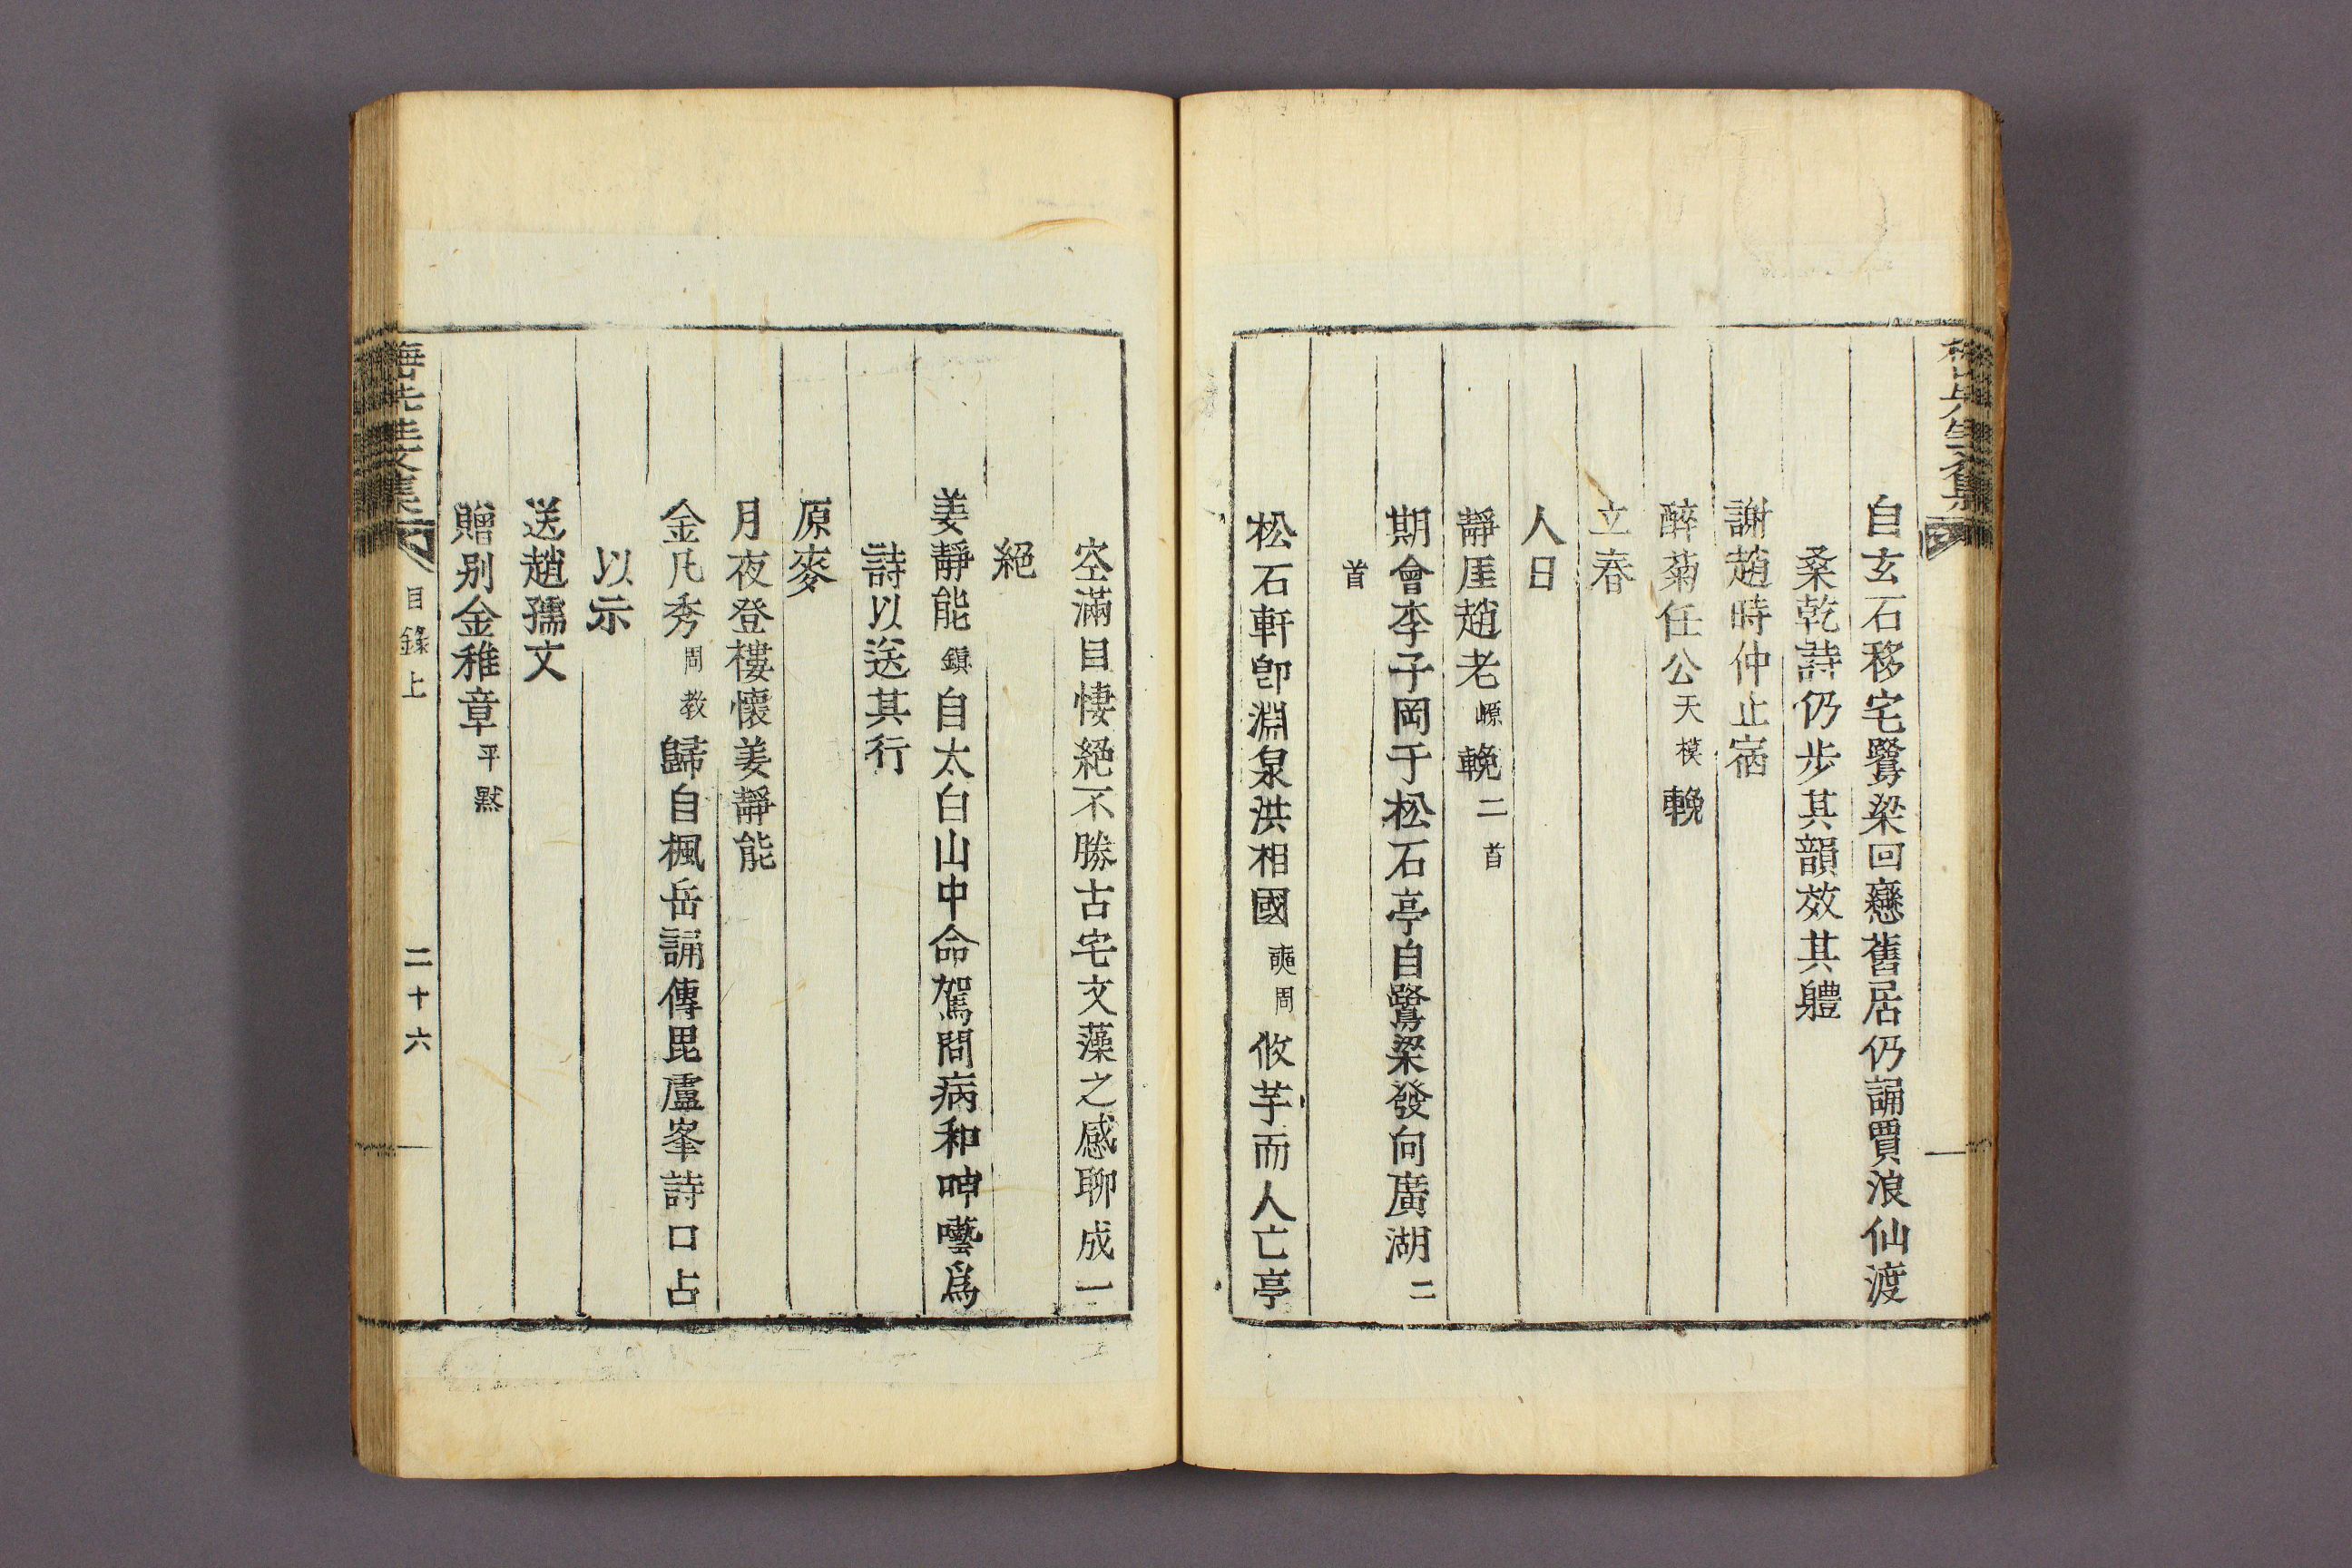 自玄石移宅鷺梁回戀舊居仍誦賈浪仙渡
桑乾詩仍步其韻效其軆
謝趙時仲止宿
醉菊任公天模輓
立春
人日
靜厓趙老㟲輓二首
期會李子岡于松石亭自鷺梁發向廣湖二
首
松石軒卽淵泉洪相國奭周攸芋而人亡亭
空滿目悽絕不勝古宅文藻之感聊成一
絕
姜靜能鎭自太白山中命駕問病和呻囈爲
詩以送其行
原麥
月夜登樓懷姜靜能
金凡秀周教歸自楓岳誦傳毘盧峯詩口占
以示
送趙孺文
贈別金稚章平默
梅山先生文集
目錄上
二十六